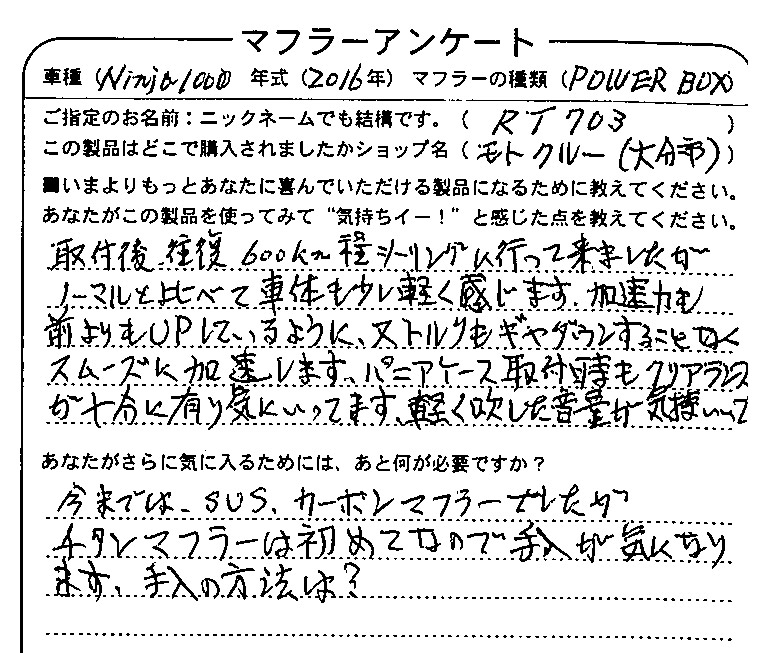 マフラーアンケート
車種（Ninja1000 年式（2016年）マフラーの種類（POWER BOX）
ご指定のお名前：ニックネームでも結構です。（ RT703 ）
この製品はどこで購入されましたかショップ名（モトクルー（大分市））
■いまよりもっとあなたに喜んでいただける製品になるために教えてください。
あなたがこの製品を使ってみて“気持ちイー！”と感じた点を教えてください。
取付後 往復 600km程ツーリングに行って来ましたが
ノーマルと比べて車体も少し軽く感じます、加速力も
前よりもUPしているように、又トルクもギヤダウンすることなく
スムーズに加速します、パニアケース取付時もクリアランス
が十分に有り気にいってます、軽く吹した音量が気持いいで
あなたがさらに気に入るためには、あと何が必要ですか？
今までは、SUS、カーボンマフラーでしたが
チタンマフラーは初めてなので手入が気になり
ます、手入の方法は？